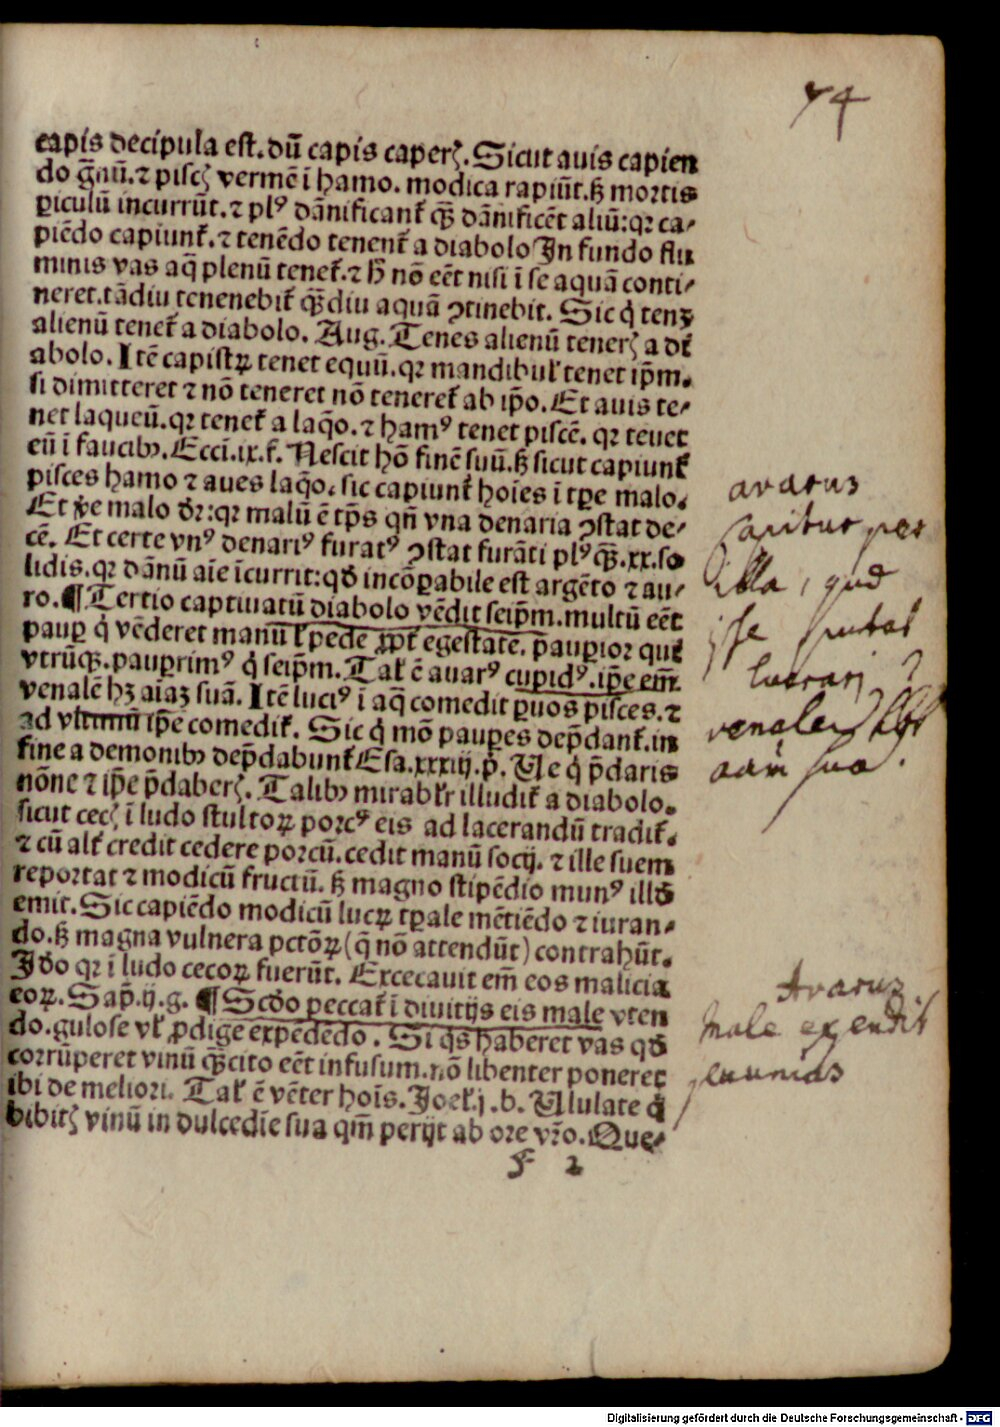 74
capis decipula est. dũ capis caperꝭ. Sicut auis capien
do g̃nũ. ⁊ piscꝭ vermẽ ĩ hamo. modica rapiũt. sꝫ mortis
ꝑiculũ incurrũt. ⁊ plꝰ dãnificant̃ qꝫ̃ dãnificẽt aliũ: qꝛ ca-
piẽdo capiunt̃. ⁊ tenẽdo tenent̃ a diabolo In fundo flu
minis vas aq̃ plenũ tenet̃. ⁊ h̃ nõ eẽt nisi ĩ se aquã conti-
neret. tãdiu tenenebit̃ qꝫ̃diu aquã ꝯtinebit. Sic q̇ tenꝫ
alienũ tenet̃ a diabolo. Aug. Tenes alienũ tenerꝭ a di
abolo. Itẽ capistꝝ tenet equũ. qꝛ mandibul̃ tenet ip̃m.
si dimitteret ⁊ nõ teneret nõ teneret̃ ab ip̃o. Et auis te-
net laqueũ. qꝛ tenet̃ a laq̃o. ⁊ hamꝰ tenet piscẽ. qꝛ teuet
eũ ĩ faucibꝰ. Ecci̇. ix. f. Nescit hõ finẽ suũ. sꝫ sicut capiunt̃
pisces hamo ⁊ aues laq̃o. sic capiunt̃ hoĩes ĩ tꝑe malo.
Et tꝑe malo dr̃: qꝛ malũ ẽ tp̃s qñ vna denaria ꝯstat de-
cẽ. Et certe vnꝰ denariꝰ furatꝰ ꝯstat furãti plꝰ qꝫ̃. xx. so
lidis. qꝛ dãnũ aĩe ĩcurrit: qd̃ incõꝑabile est argẽto ⁊ au-
ro. ¶ Tertio captiuatũ diabolo vẽdit seip̃m. multũ eẽt
pauꝑ q̇ vẽderet manũ l̃ pedẽ ꝓpt̃ egestatẽ. p̃auꝑior qui
vtrũqꝫ. pauꝑrimꝰ q̇ seip̃m. Tal̃ ẽ auarꝰ cupidꝰ. ip̃e em̃
venalẽ hꝫ aĩaꝫ suã. Itẽ luciꝰ ĩ aq̃ comedit ꝑuos pisces. ⁊
ad vltimũ ip̃e comedit̃. Sic q̇ mõ pauꝑes dep̃dant̃. in
fine a demonibꝰ dep̃dabunt̃ Esa. xxxiij. p̃. Ue q̇ p̃daris
nõne ⁊ ip̃e p̃daberꝭ. Talibꝰ mirabl̃r illudit̃ a diabolo.
sicut cecꝭ ĩ ludo stultoꝝ porcꝰ eis ad lacerandũ tradit̃.
⁊ cũ alt̃ credit cedere porcũ. cedit manũ socij. ⁊ ille suem
reportat ⁊ modicũ fructũ. sꝫ magno stipẽdio munꝰ illd̃
emit. Sic capiẽdo modicũ lucꝝ tꝑale mẽtiẽdo ⁊ iuran-
do. sꝫ magna vulnera pctõꝝ (q̃ nõ attendũt) contrahũt.
Id̃o qꝛ ĩ ludo cecoꝝ fuerũt. Excecauit em̃ eos malicia
eoꝝ. Sap̃. ij. g. ¶ Scd̃o peccat̃ ĩ diuitijs eis male vten
do. gulose vl̃ ꝓdige expẽdẽdo. Si q̇s haberet vas qd̃
corrũperet vinũ qꝫ̃cito eẽt infusum. nõ libenter poneret
ibi de meliori. Tal̃ ẽ vẽter hoĩs. Joel̃. j. b. Ululate q̇
bibitꝭ vinũ in dulcedĩe sua qm̃ perijt ab ore vr̃o. Que-
f 2
avarus
capitur per
illa, quod
ipse putat
lucrari
venalem
aãm sua.
Avarus
male expendit
pecunias
Digitalisierung gefördert durch die Deutsche Forschungsgemeinschaft - DFG